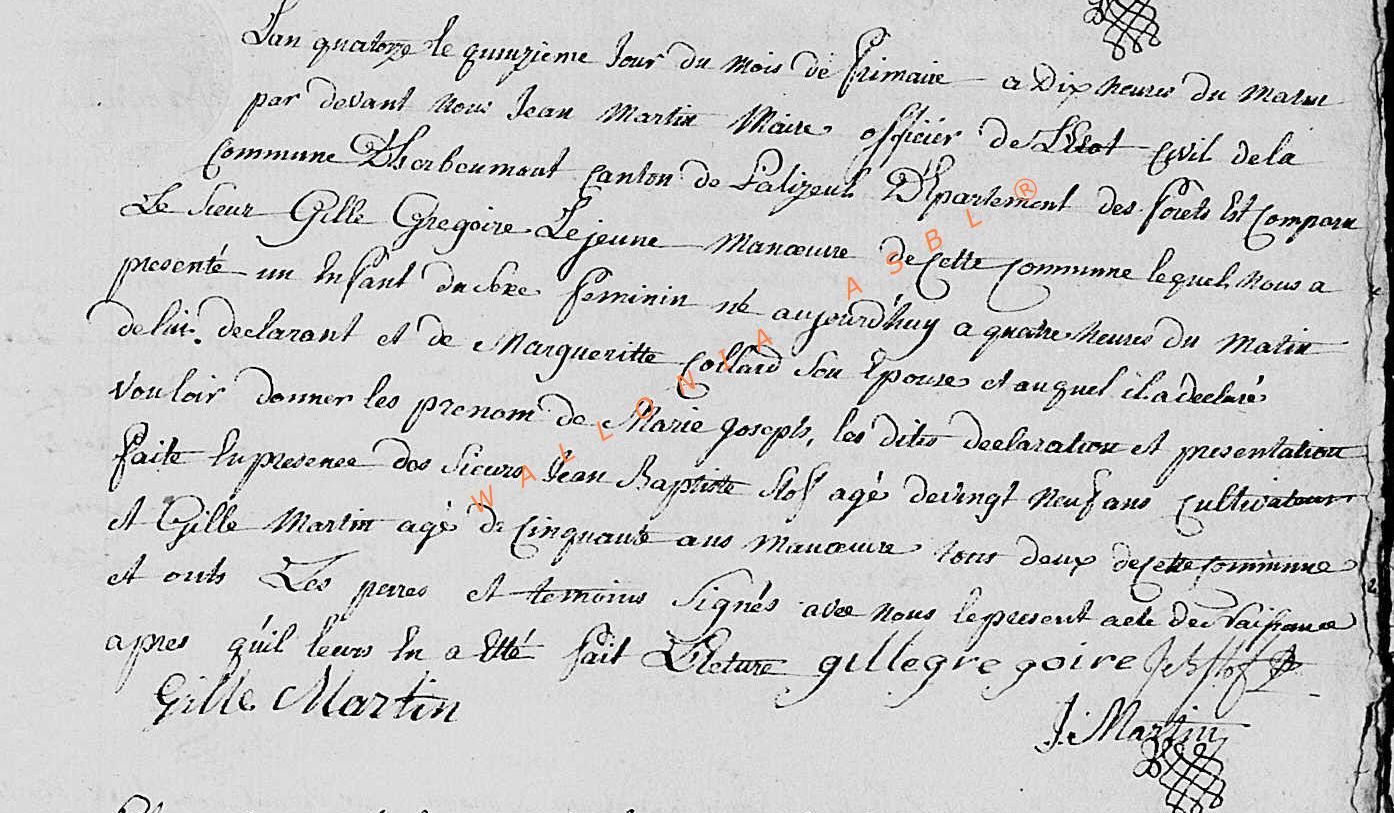 L'an quatorze le quinzieme Jour du mois de frimaire a Dix heures du matin
par devant nous Jean Martin Maire officier de L'Etat Civil de la
Commune D'herbeumont Canton de Palizeul Département des forêts Est Comparu
Le Sieur Gille Gregoire Lejeune manœuvre de Cette Commune lequel Nous a
presenté un Enfant du Sexe feminin né aujourd'huy a quatre heures du matin
de lui declarant et de Margueritte Collard Son Epouse et auquel il a declaré
Vouloir donner les prenom de Marie Joseph, les dites declaration et presentation
faite En presence des Sieurs Jean Baptiste Stof agé de vingt neuf ans Cultivateur
et Gille Martin agé de Cinquante ans manœuvre tous deux de Cette Commune
et onts Les perres et temoins Signés avec nous le present acte de Naissance
apres qu'il leurs En a Etté fait Lecture gille gregoire J b Stof
Gille Martin
J. Martin
WALLONIA ASBL ®